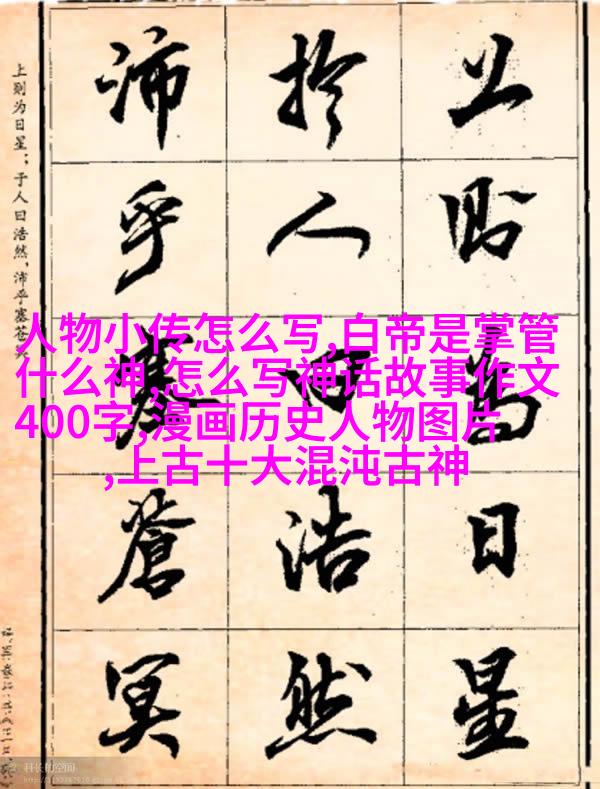 上则为日星
扵人曰浩然
沛乎塞蒼冥
上则为日星；于人曰浩然，沛乎塞苍冥
人物小传怎么写,白帝是掌管
什么神,怎么写神话故事作文
400字,漫画历史人物图片
,上古十大混沌古神
科长的空间